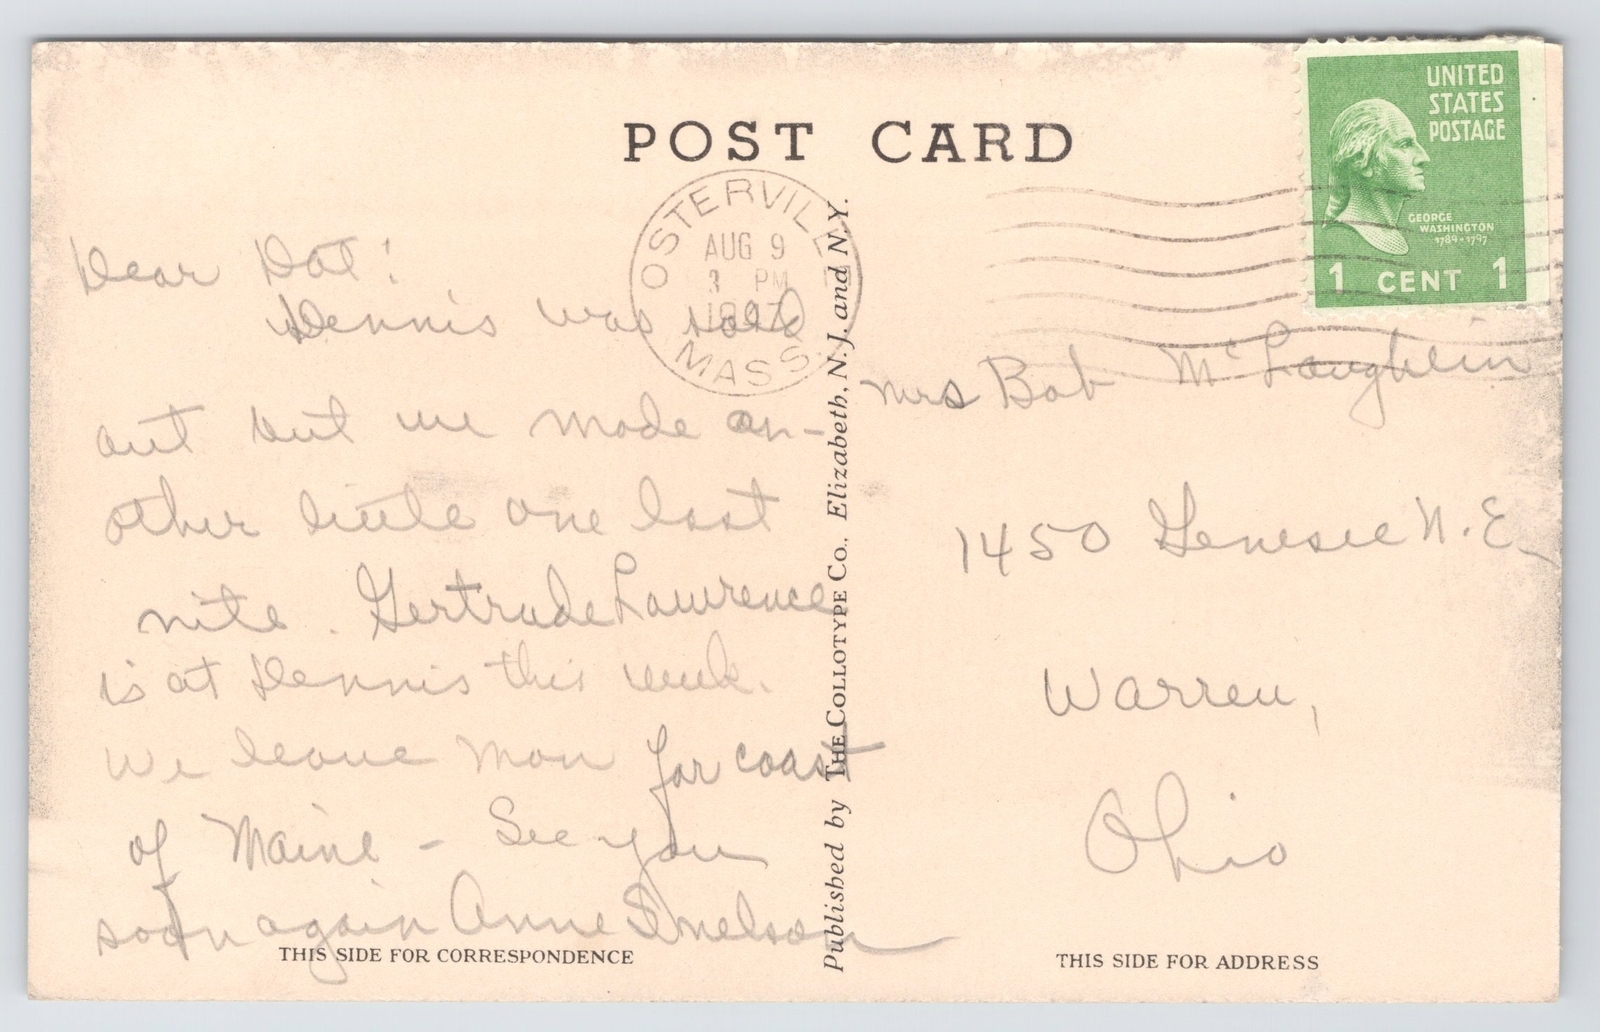 POST CARD
UNITED
STATES
POSTAGE
GEORGE
WASHINGTON
1789-1797
1 CENT 1
OSTERVILLE
AUG 9
3 PM
MASS.
Dear Dot!
Dennis was sold
out but we made an-
other little one last
nite. Gertrude Lawrence
is at Dennis this week.
We leave Mon for coast
of Maine - See you
soon again Anne
Mrs Bob McLaughlin
1450 Genesee N.E.
Warren,
Ohio
Published by THE COLLOTYPE CO., Elizabeth, N. J. and N. Y.
THIS SIDE FOR CORRESPONDENCE
THIS SIDE FOR ADDRESS